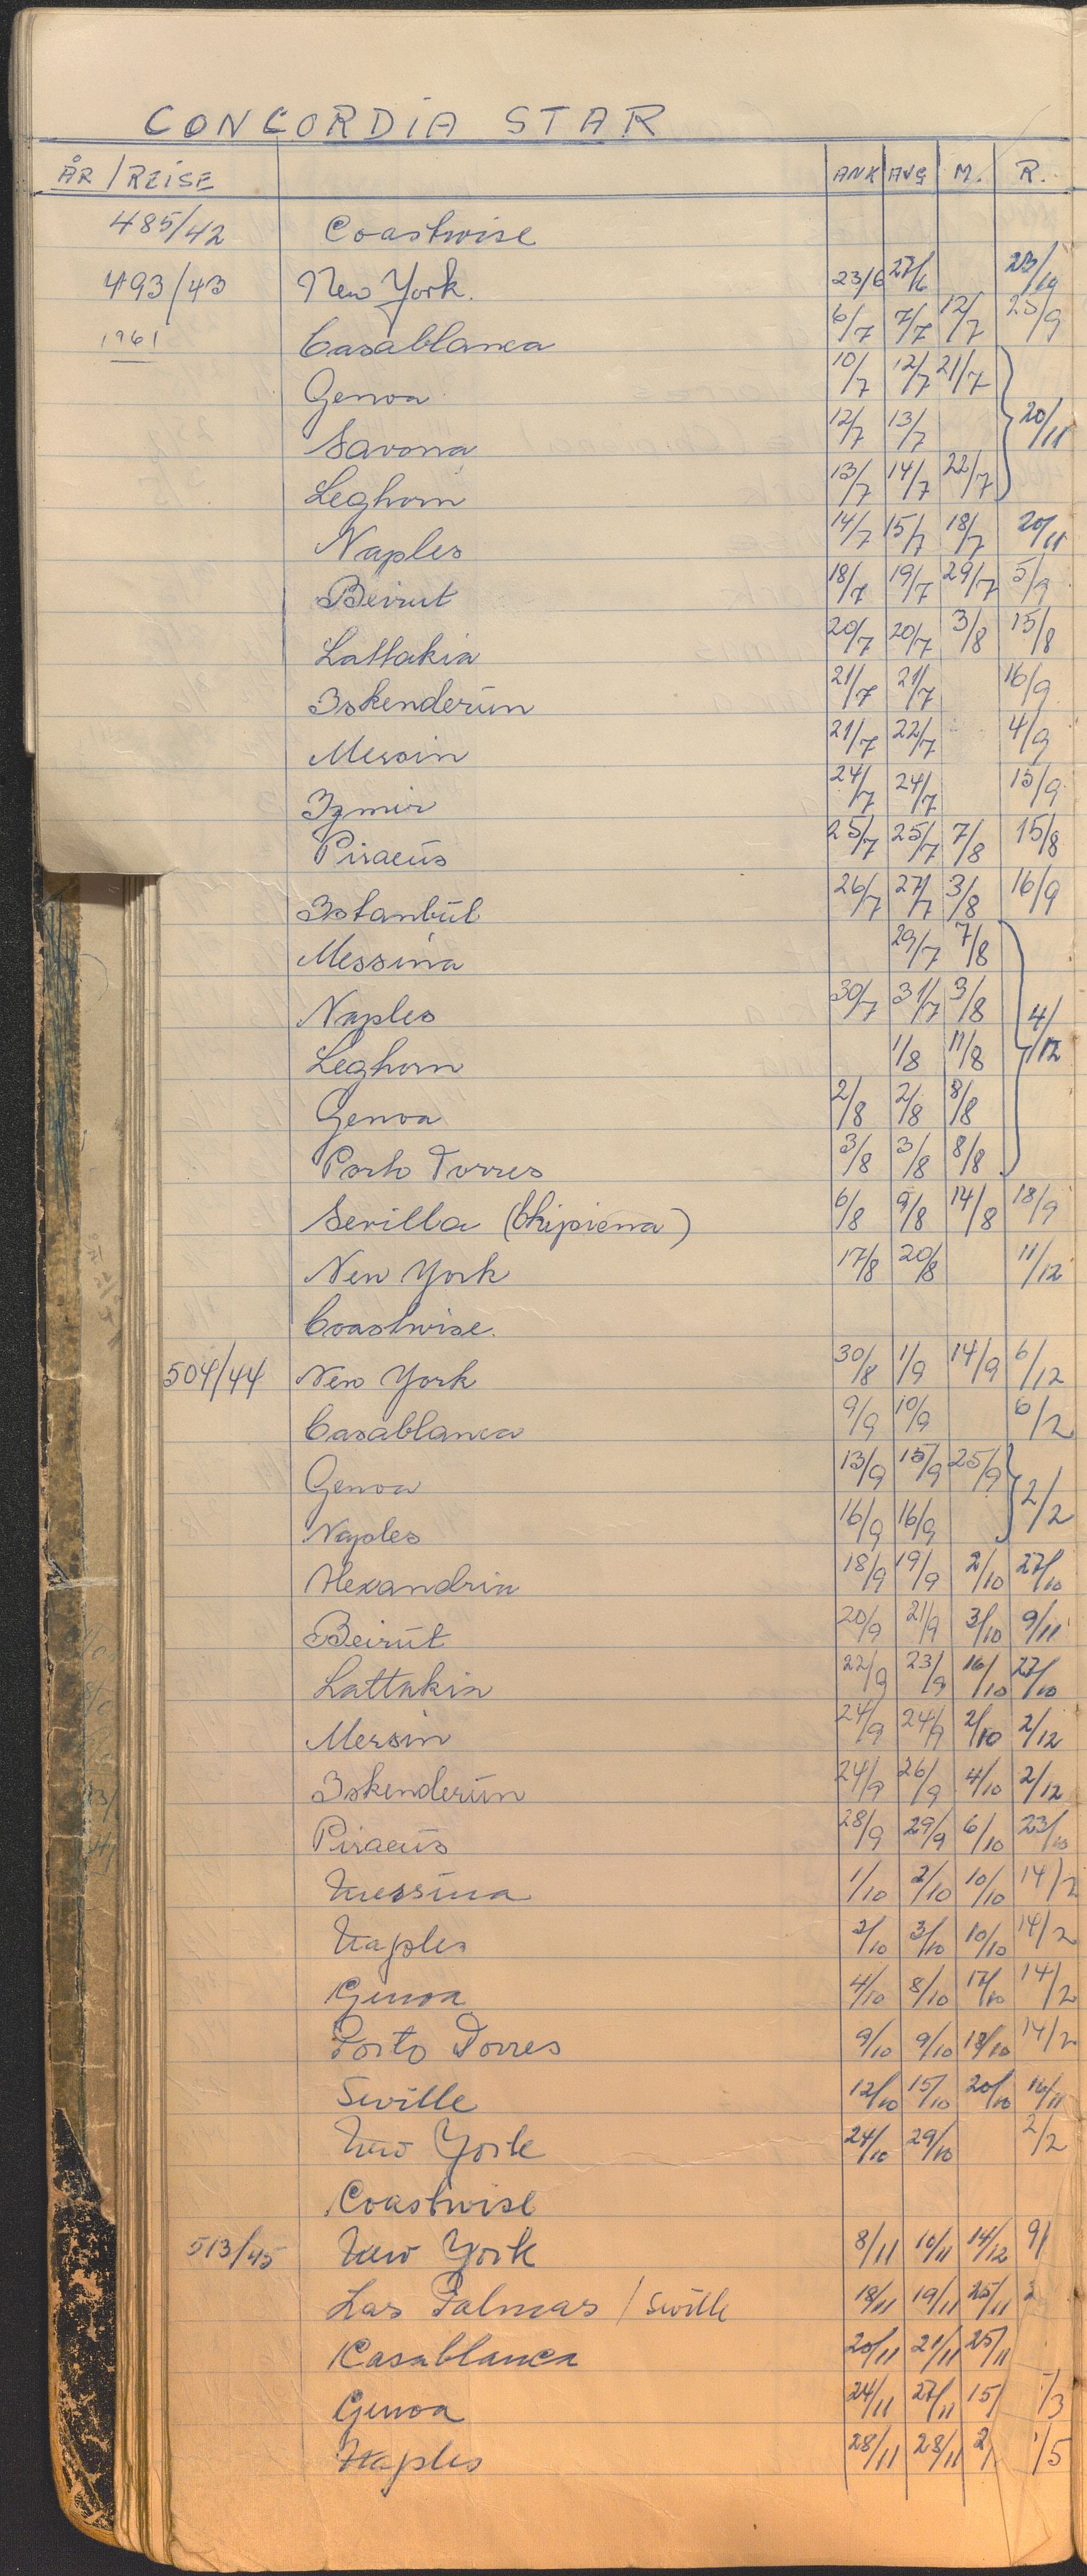 CONCORDIA STAR
ÅR / REISE ANK AVG M. R.
485/42 Coastwise
493/43 New York. 23/6 27/6
1961 Casablanca 6/7 7/7 12/7 25/9
Genoa 10/7 12/7 21/7
Savona 12/7 13/7 20/11
Leghorn 13/7 14/7 22/7
Naples 14/7 15/7 18/7 20/11
Beirut 18/7 19/7 29/7 5/9
Lattakia 20/7 20/7 3/8 15/8
Iskenderun 21/7 21/7 16/9
Mersin 21/7 22/7 4/9
Izmir 24/7 24/7 15/9
Piraeus 25/7 25/7 7/8 15/8
Istanbul 26/7 27/7 3/8 16/9
Messina 29/7 7/8
Naples 30/7 31/7 3/8 4/12
Leghorn 1/8 11/8
Genoa 2/8 2/8 8/8
Porto Torres 3/8 3/8 8/8
Sevilla (Chipiona) 6/8 9/8 14/8 18/9
New York 17/8 20/8 11/12
Coastwise.
504/44 New York 30/8 1/9 14/9 6/12
Casablanca 9/9 10/9 6/2
Genoa 13/9 15/9 25/9
Naples 16/9 16/9 2/2
Alexandria 18/9 19/9 2/10 27/10
Beirut 20/9 21/9 3/10 9/11
Lattakia 22/9 23/9 16/10 27/10
Mersin 24/9 24/9 2/10 2/12
Iskenderun 24/9 26/9 4/10 2/12
Piraeus 28/9 29/9 6/10 23/10
Messina 1/10 2/10 10/10 14/2
Naples 2/10 3/10 10/10 14/2
Genoa 4/10 8/10 17/10 14/2
Porto Torres 9/10 9/10 18/10 14/2
Seville 12/10 15/10 20/10 16/11
New York 24/10 29/10 2/2
Coastwise
513/45 New York 8/11 10/11 14/12 9/
Las Palmas / Seville 18/11 19/11 25/11
Casablanca 20/11 21/11 25/11
Genoa 24/11 27/11 15/ /3
Naples 28/11 28/11 2/ 1/5